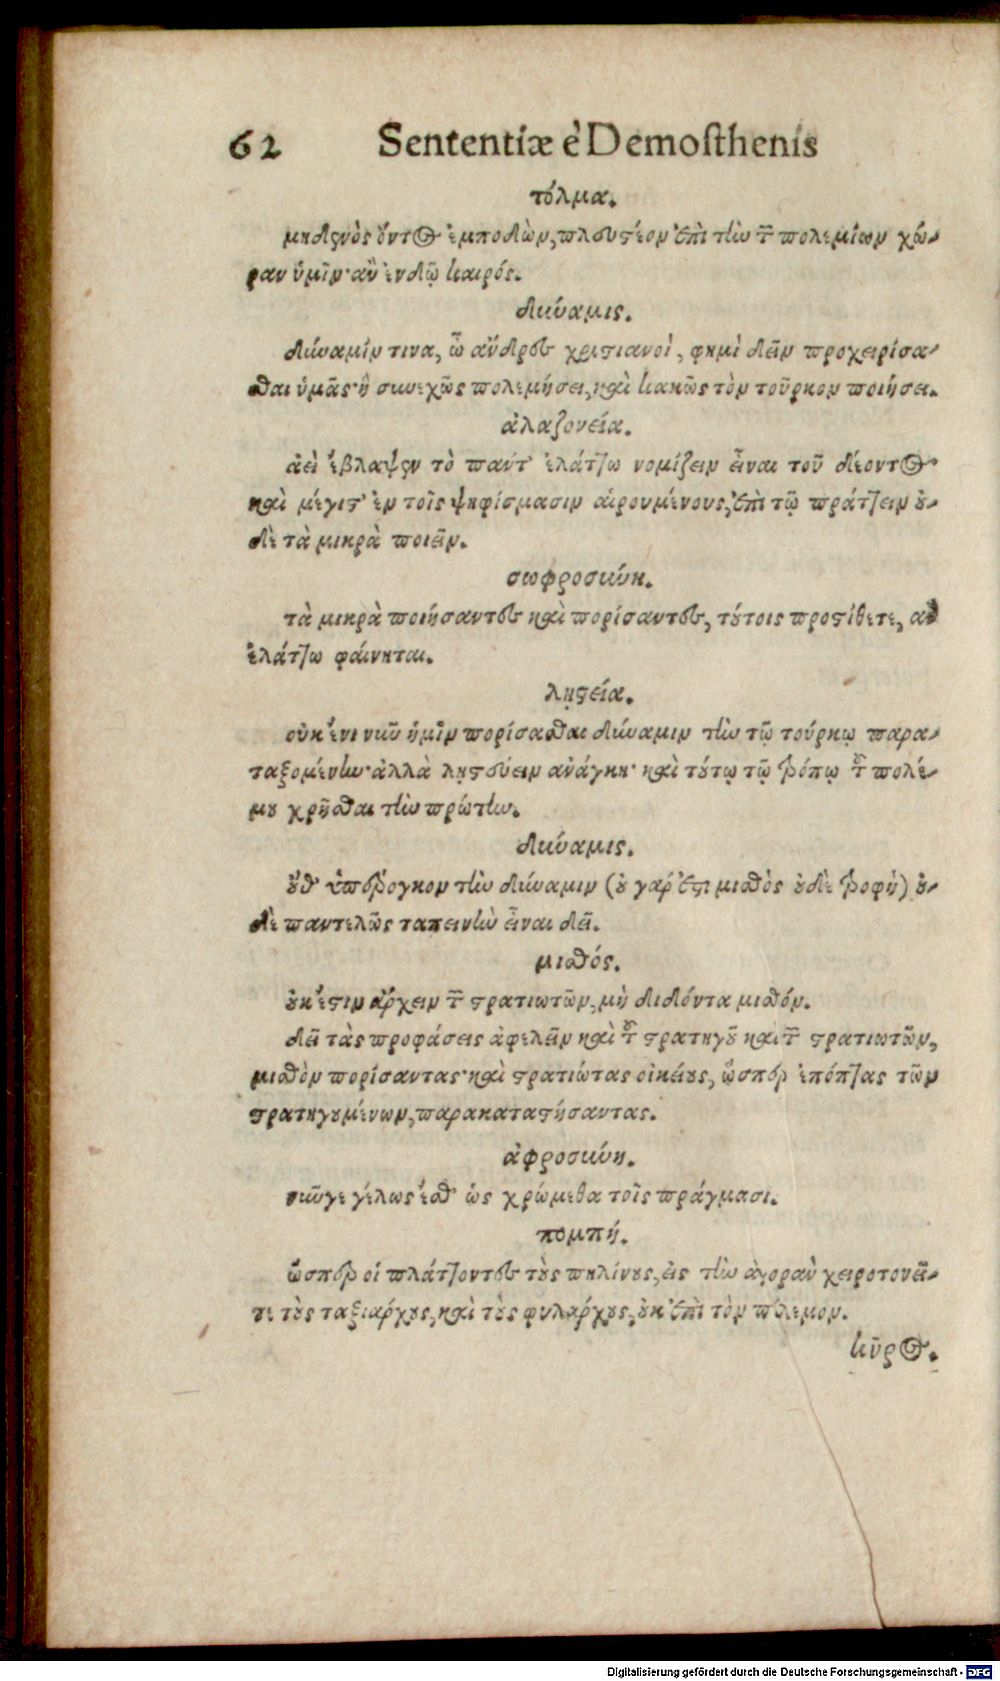 62 Sententiæ è Demosthenis
τόλμα.
μηδενὸς ὄντος ἐμποδὼν, πλευστέον ἐπὶ τὴν τῶν πολεμίων χώ-
ραν ὑμῖν· ἂν ἐνδῷ καιρός.
δύναμις.
δύναμίν τινα, ὦ ἄνδρες χριστιανοὶ, φημὶ δεῖν προχειρίσα-
σθαι ὑμᾶς· ἣ συνεχῶς πολεμήσει, καὶ κακῶς τὸν τοῦρκον ποιήσει.
ἀλαζονεία.
ἀεὶ ἔβλαψεν τὸ παντ' ἐλάττω νομίζειν εἶναι τοῦ δέοντος·
καὶ μέγιστ' ἐν τοῖς ψηφίσμασιν αἱρουμένους, ἐπὶ τῷ πράττειν ου-
δὲ τὰ μικρὰ ποιεῖν.
σωφροσύνη.
τὰ μικρὰ ποιήσαντες καὶ πορίσαντες, τούτοις προστίθετε, ἂν
ἐλάττω φαίνηται.
λῃστεία.
οὐκ ἔνι νῦν ἡμῖν πορίσασθαι δύναμιν τὴν τῷ τούρκῳ παρα-
ταξομένην· ἀλλὰ λῃστεύειν ἀνάγκη· καὶ τούτῳ τῷ τρόπῳ τοῦ πολέ-
μου χρῆσθαι τὴν πρώτην.
δύναμις.
οὔθ' ὑπέρογκον τὴν δύναμιν (οὐ γάρ ἐστι μισθὸς οὐδὲ τροφὴ) οὐ-
δὲ παντελῶς ταπεινὴν εἶναι δεῖ.
μισθός.
οὐκ ἔστιν ἄρχειν τῶν στρατιωτῶν, μὴ διδόντα μισθόν.
δεῖ τὰς προφάσεις ἀφελεῖν καὶ τοῦ στρατηγοῦ καὶ τῶν στρατιωτῶν,
μισθὸν πορίσαντας· καὶ στρατιώτας οἰκείους, ὥσπερ ἐπόπτας τῶν
στρατηγουμένων, παρακαταστήσαντας.
ἀφροσύνη.
νῦν γε γέλως ἔσθ' ὡς χρώμεθα τοῖς πράγμασι.
πομπή.
ὥσπερ οἱ πλάττοντες τοὺς πηλίνους, εἰς τὴν ἀγορὰν χειροτονεῖ-
τε τοὺς ταξιάρχους, καὶ τοὺς φυλάρχους, οὐκ ἐπὶ τὸν πόλεμον.
κῦρος.
Digitalisierung gefördert durch die Deutsche Forschungsgemeinschaft - DFG